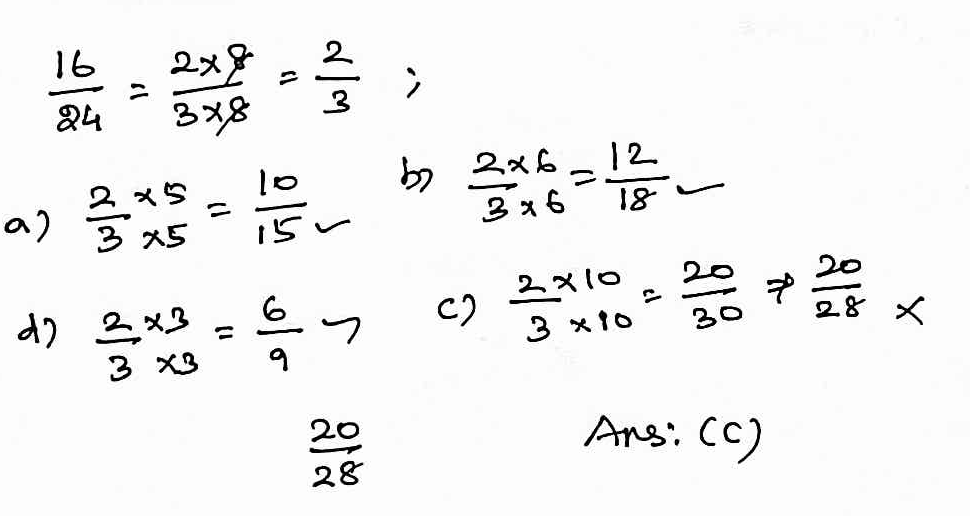 16/24 = 2×8/3×8 = 2/3 ;
a) 2/3 ×5/×5 = 10/15 ✓
b) 2×6/3×6 = 12/18 ✓
d) 2/3 ×3/×3 = 6/9 ✓
c) 2×10/3×10 = 20/30 ≠ 20/28 ×
20/28
Ans: (C)